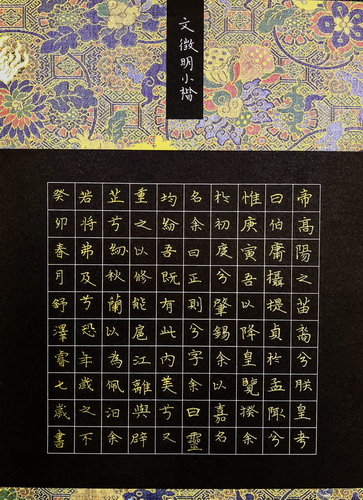 文徵明小楷
帝高陽之苗裔兮朕皇考
曰伯庸攝提貞於孟陬兮
惟庚寅吾以降皇覽揆余
於初度兮肇錫余以嘉名
名余曰正則兮字余曰靈
均紛吾既有此內美兮又
重之以修能扈江離與辟
芷兮紉秋蘭以為佩汩余
若將弗及兮恐年歲之不
癸卯春月舒澤睿七歲書